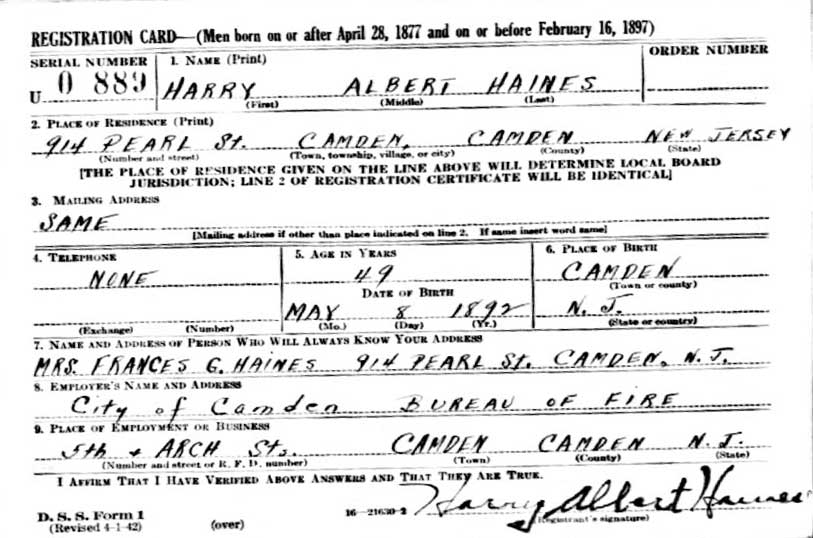 REGISTRATION CARD—(Men born on or after April 28, 1877 and on or before February 16, 1897)
SERIAL NUMBER 1. NAME (Print) ORDER NUMBER
U 0 889 HARRY ALBERT HAINES
(First) (Middle) (Last)
2. PLACE OF RESIDENCE (Print)
914 PEARL St. CAMDEN, CAMDEN NEW JERSEY
(Number and street) (Town, township, village, or city) (County) (State)
[THE PLACE OF RESIDENCE GIVEN ON THE LINE ABOVE WILL DETERMINE LOCAL BOARD
JURISDICTION; LINE 2 OF REGISTRATION CERTIFICATE WILL BE IDENTICAL]
3. MAILING ADDRESS
SAME
[Mailing address if other than place indicated on line 2. If same insert word same]
4. TELEPHONE 5. AGE IN YEARS 6. PLACE OF BIRTH
NONE 49 CAMDEN
DATE OF BIRTH (Town or county)
MAY 8 1892 N. J.
(Exchange) (Number) (Mo.) (Day) (Yr.) (State or country)
7. NAME AND ADDRESS OF PERSON WHO WILL ALWAYS KNOW YOUR ADDRESS
MRS. FRANCES G. HAINES 914 PEARL St. CAMDEN, N. J.
8. EMPLOYER'S NAME AND ADDRESS
City of Camden BUREAU OF FIRE
9. PLACE OF EMPLOYMENT OR BUSINESS
5th + ARCH Sts. CAMDEN CAMDEN N. J.
(Number and street or R. F. D. number) (Town) (County) (State)
I AFFIRM THAT I HAVE VERIFIED ABOVE ANSWERS AND THAT THEY ARE TRUE.
Harry Albert Haines
D. S. S. Form 1 16—21630-2 (Registrant's signature)
(Revised 4-1-42) (over)